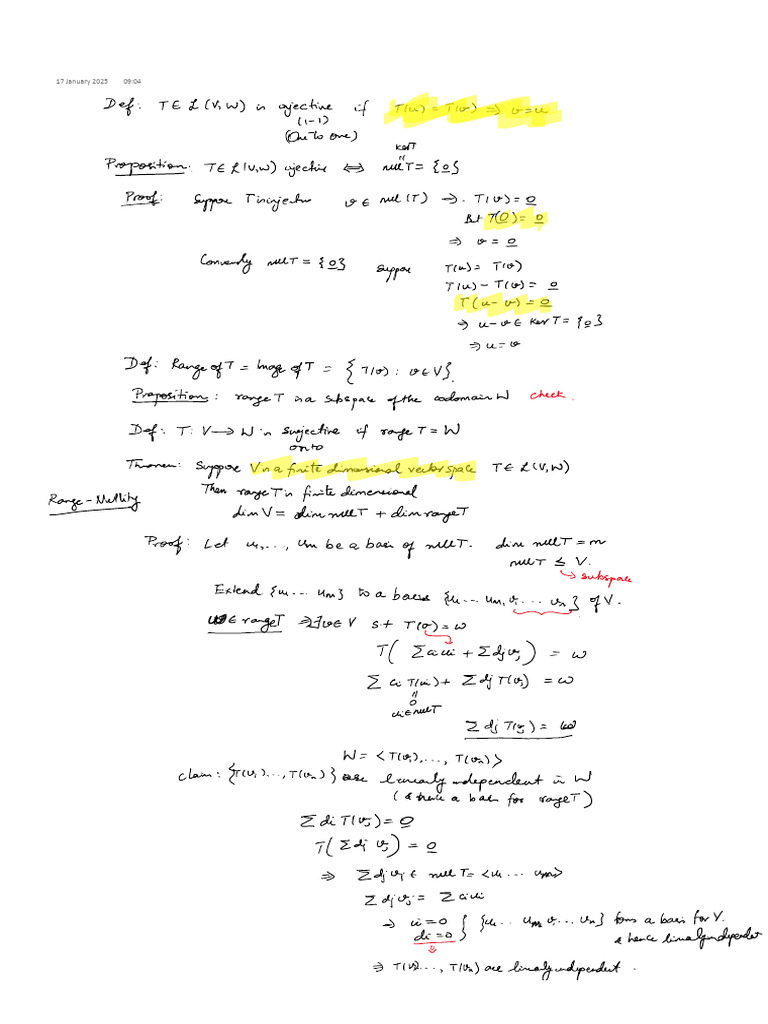 17 January 2025 09:04
Def: T ∈ L(V,W) is injective if T(u) = T(v) ⇒ v = u
(1-1)
(One to one)
ker T
"
Proposition: T ∈ L(V,W) injective ⇔ null T = {0}
Proof: Suppose T is injective v ∈ null(T) → T(v) = 0
But T(0) = 0
⇒ v = 0
Conversely null T = {0} suppose T(u) = T(v)
T(u) - T(v) = 0
T(u - v) = 0
→ u - v ∈ ker T = {0}
⇒ u = v
Def: Range of T = Image of T = {T(v) : v ∈ V}.
Proposition: range T is a subspace of the codomain W check.
Def: T: V → W is surjective if range T = W
onto
Theorem: Suppose V is a finite dimensional vector space T ∈ L(V,W)
Then range T is finite dimensional
Range-Nullity
dim V = dim null T + dim range T
Proof: Let u1, ..., um be a basis of null T. dim null T = m
null T ≤ V.
→ subspace
Extend {u1 ... um} to a basis {u1 ... um, v1 ... vn} of V.
w ∈ range T ⇒ ∃ v ∈ V s.t T(v) = w
T(Σ ci ui + Σ dj vj) = w
Σ ci T(ui) + Σ dj T(vj) = w
"
0
ui ∈ null T
Σ dj T(vj) = w
W = <T(v1), ..., T(vn)>
Claim: {T(v1) ..., T(vn)} are linearly independent in W
(& hence a basis for range T)
Σ dj T(vj) = 0
T(Σ dj vj) = 0
⇒ Σ dj vj ∈ null T = <u1 ... um>
Σ dj vj = Σ ci ui
→ ci = 0 } {u1 ... um v1 ... vn} forms a basis for V.
di = 0 & hence linearly independent
⇒ T(v1) ..., T(vn) are linearly independent.